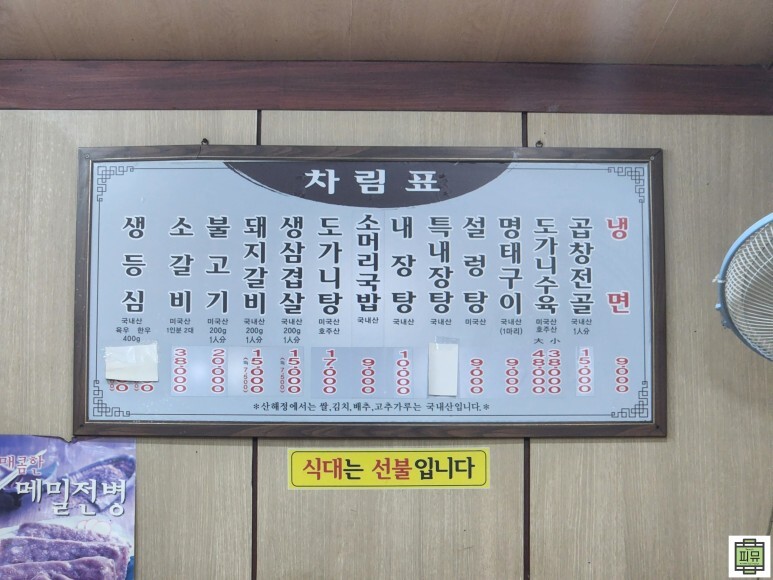 차림표
생등심 국내산 육우 한우 400g
소갈비 미국산 1인분 2대 38000
불고기 미국산 200g 1인분 20000
돼지갈비 국내산 200g 1인분 15000
생삼겹살 국내산 200g 1인분 15000
도가니탕 미국산 호주산 17000
소머리국밥 국내산 9000
내장탕 국내산 10000
특내장탕 국내산
설렁탕 미국산 9000
명태구이 국내산 (1마리) 9000
도가니수육 미국산 호주산 大 小 48000 38000
곱창전골 국내산 1인분 15000
냉면 9000
※산해정에서는 쌀,김치,배추,고추가루는 국내산입니다.※
식대는 선불입니다
매콤한
메밀전병
피뮤